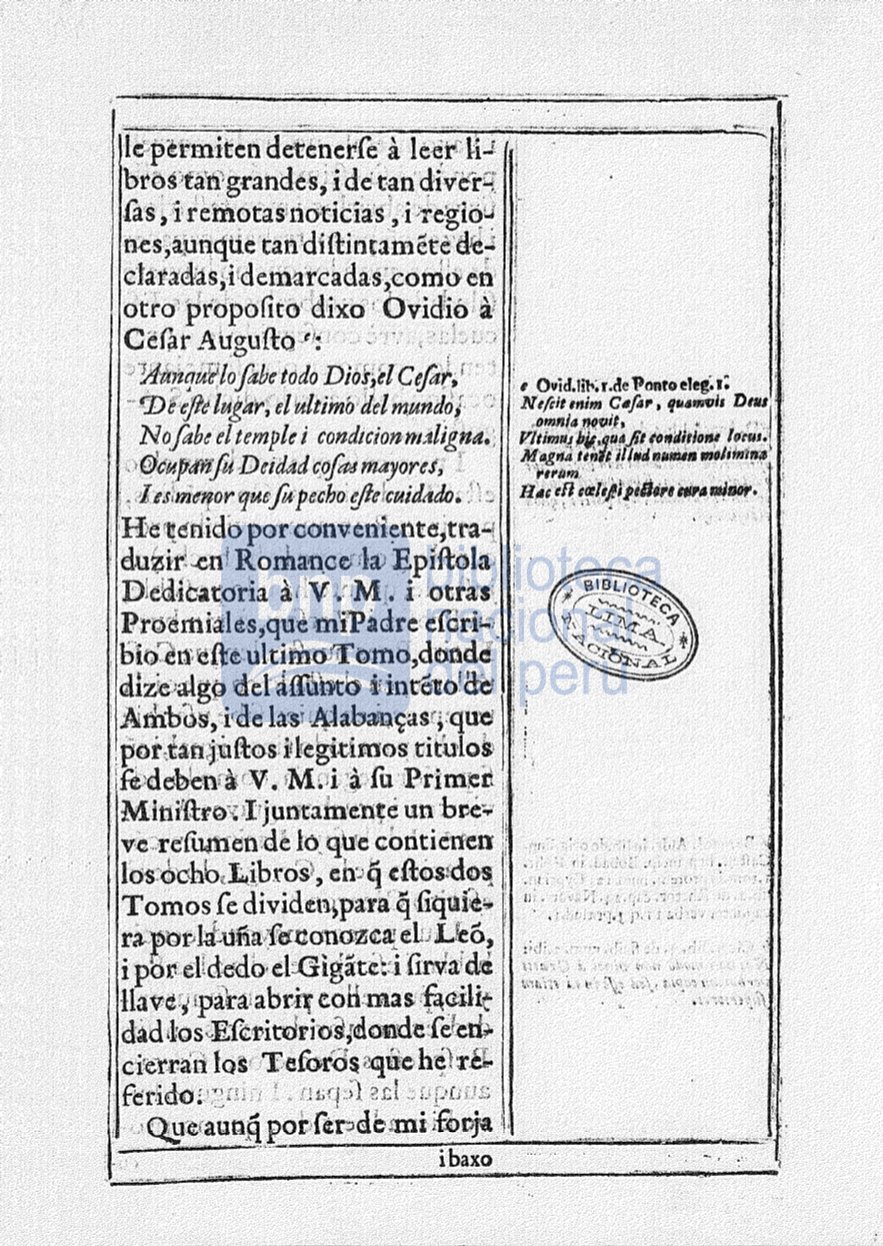 le permiten detenerſe à leer li-
bros tan grandes, i de tan diver-
ſas, i remotas noticias, i regio-
nes, aunque tan diſtintamẽte de-
claradas, i demarcadas, como en
otro propoſito dixo Ovidio à
Ceſar Auguſto e:
Aunque lo ſabe todo Dios, el Ceſar,
De eſte lugar, el ultimo del mundo,
No ſabe el temple i condicion maligna.
Ocupan ſu Deidad coſas mayores,
I es menor que ſu pecho eſte cuidado.
He tenido por conveniente, tra-
duzir en Romance la Epiſtola
Dedicatoria à V. M. i otras
Proemiales, que mi Padre eſcri-
bio en eſte ultimo Tomo, donde
dize algo del aſſunto i intẽto de
Ambos, i de las Alabanças, que
por tan juſtos i legitimos titulos
ſe deben à V. M. i à ſu Primer
Miniſtro. I juntamente un bre-
ve reſumen de lo que contienen
los ocho Libros, en q̃ eſtos dos
Tomos ſe dividen, para q̃ ſiquie-
ra por la uña ſe conozca el Leõ,
i por el dedo el Gigãte: i ſirva de
llave, para abrir con mas facili-
dad los Eſcritorios, donde ſe en-
cierran los Teſoros que he re-
ferido.
Que aunq̃ por ſer de mi forja
i baxo
e Ovid. lib. 1. de Ponto eleg. 1.
Neſcit enim Cæſar, quamvis Deus
omnia novit,
Vltimus hic, qua ſit conditione locus.
Magna tenent illud numen molimina
rerum
Hac eſt cœleſti pectore cura minor.
BIBLIOTECA
LIMA
NACIONAL
bnp
biblioteca
nacional
del perú